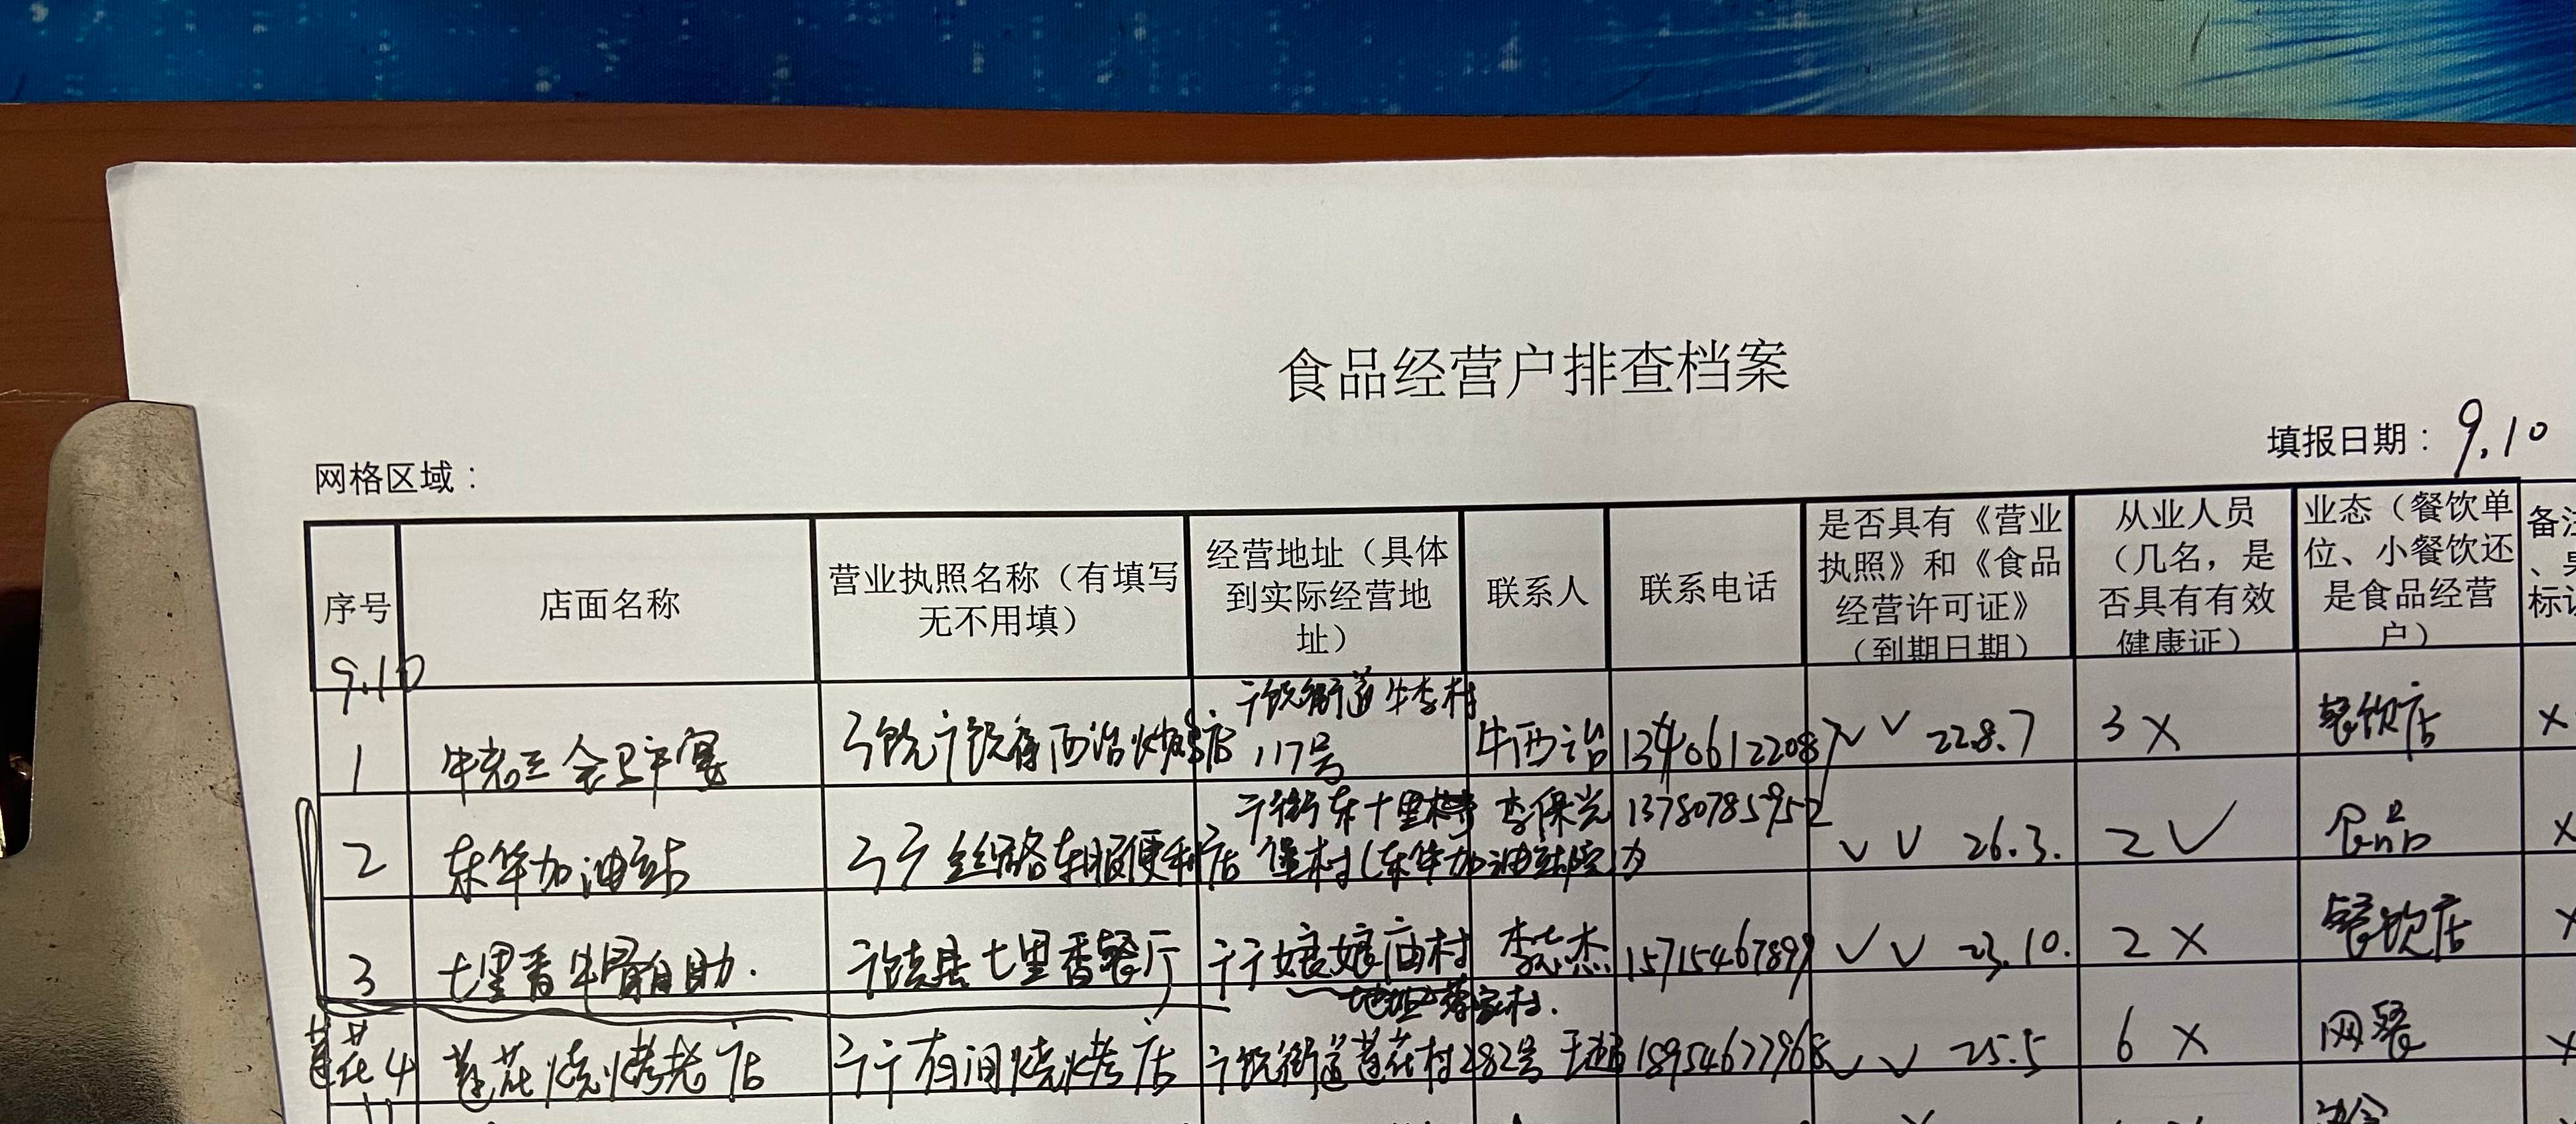 食品经营户排查档案
网格区域：
填报日期：9.10
序号
店面名称
营业执照名称（有填写
无不用填）
经营地址（具体
到实际经营地
址）
联系人
联系电话
是否具有《营业
执照》和《食品
经营许可证》
（到期日期）
从业人员
（几名，是
否具有有效
健康证）
业态（餐饮单
位、小餐饮还
是食品经营
户）
备注
标识
9.10
1
牛老三
饶西治炒鸡店
广饶街道牛李村
117号
牛西治
13406122087
√ √ 22.8.7
3 ×
餐饮店
×
2
东华加油站
丝路车服便利店
街东十里
堡村（东华加油站院内
李保光
13780785952
√ √ 26.3.
2 √
食品
×
3
七里香牛骨自助.
广饶县七里香餐厅
娘娘庙村
李志杰
15715467899
√ √ 23.10.
2 ×
餐饮店
×
莲花
4
莲花烧烤老店
有间烧烤店
广饶街道莲花村282号
18954677968
√ √ 25.5
6 ×
网餐
×